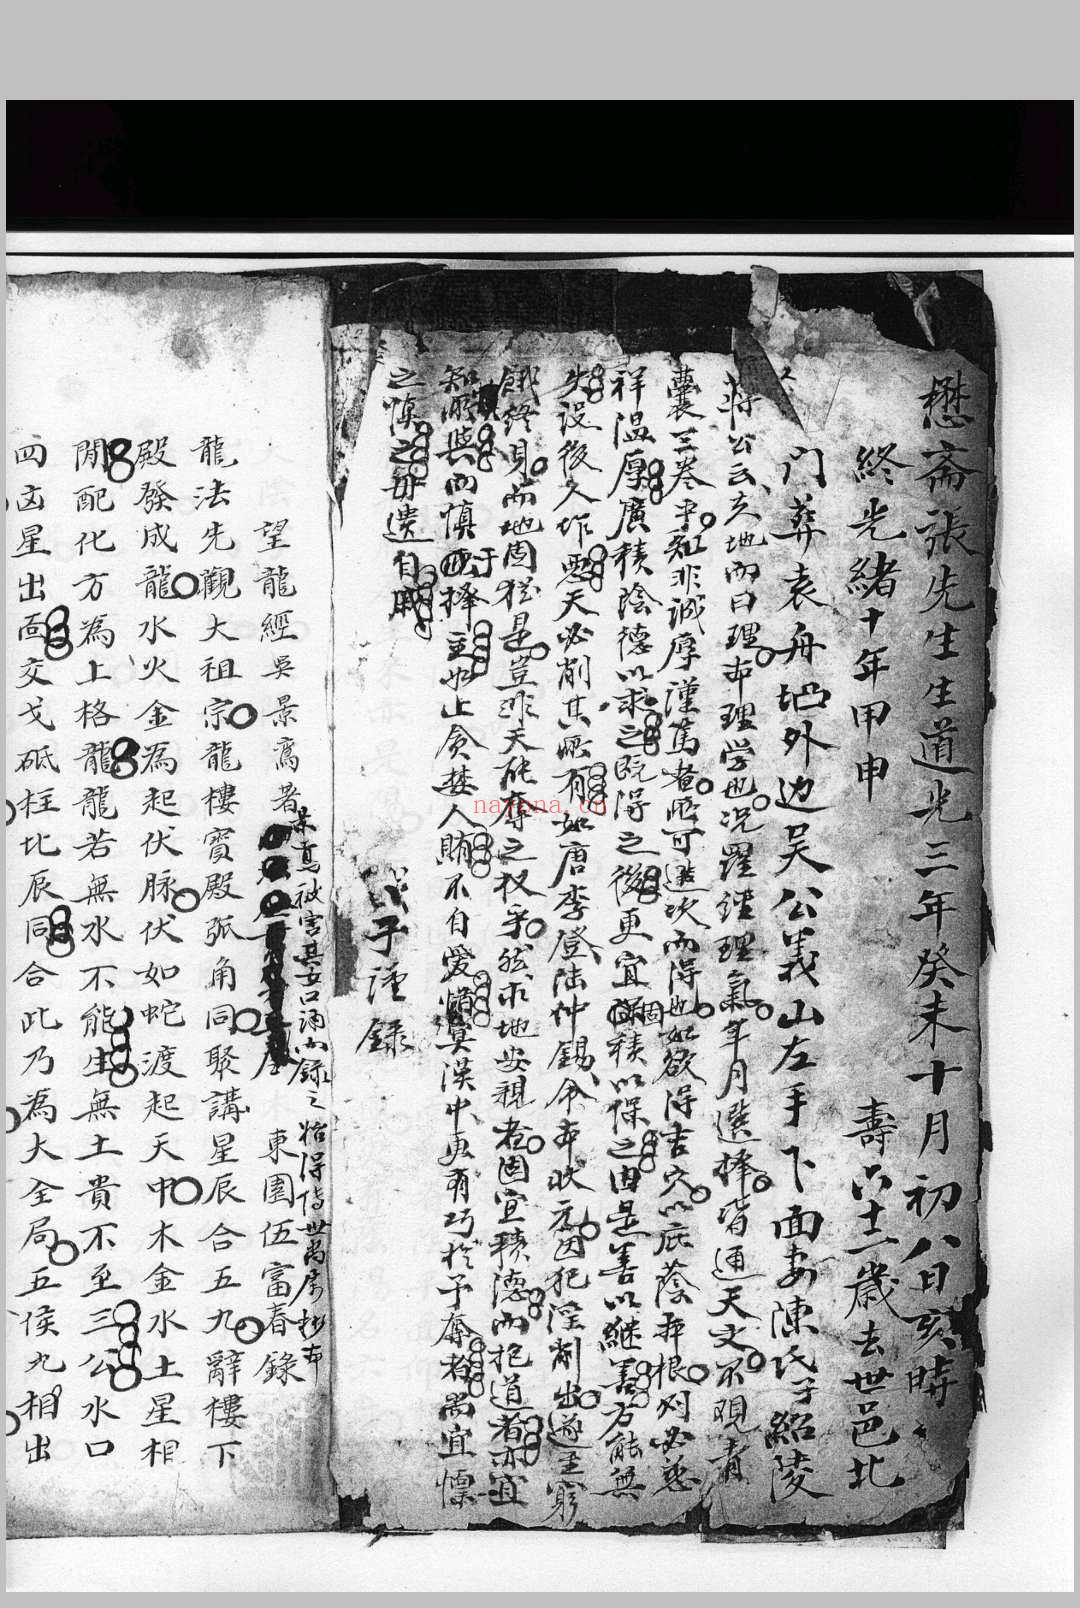 懋齋張先生生道光三年癸未十月初八日亥時
終光緒十年甲申 壽六十二歲去世邑北
門葬袁舟 外边吴公義山左手下面妻陳氏子紹陵
蔣公云夫地而曰理亦理学也况羅經理氣年月選擇皆通天文不覌青
囊三卷乎知非誠厚謹篤者 可造次而得也如欲得吉穴以庇蔭 根 必慈
祥温厚廣積陰德以求之既得之後更宜 積以保之由是善以継善方能無
失设後人作悪天必削其所有如唐李登陆仲錫余 状元因犯淫削出遂至窮
餓终身而地固犹是豈非天能奪之权乎然求地安親者固宜積德而抱道者亦宜
知所與而慎 于擇主也如止貪婪人賄不自愛惜 漠中更有巧於予奪者尚宜懍
之慎之毋遺自戚
戊子谨録
望龍經吳景鸞著 景鸞被害其女口誦而録之 得傳世
東園伍富春錄
龍法先觀大祖宗龍樓寳殿弧角同聚講星辰合五九辭樓下
殿發成龍水火金為起伏脉伏如蛇渡起天中木金水土星相
間配化方為上格龍龍若無水不能生無土貴不至三公水口
四凶星出面交戈砥柱北辰同合此乃為大全局五侯九相出
nayona.cn